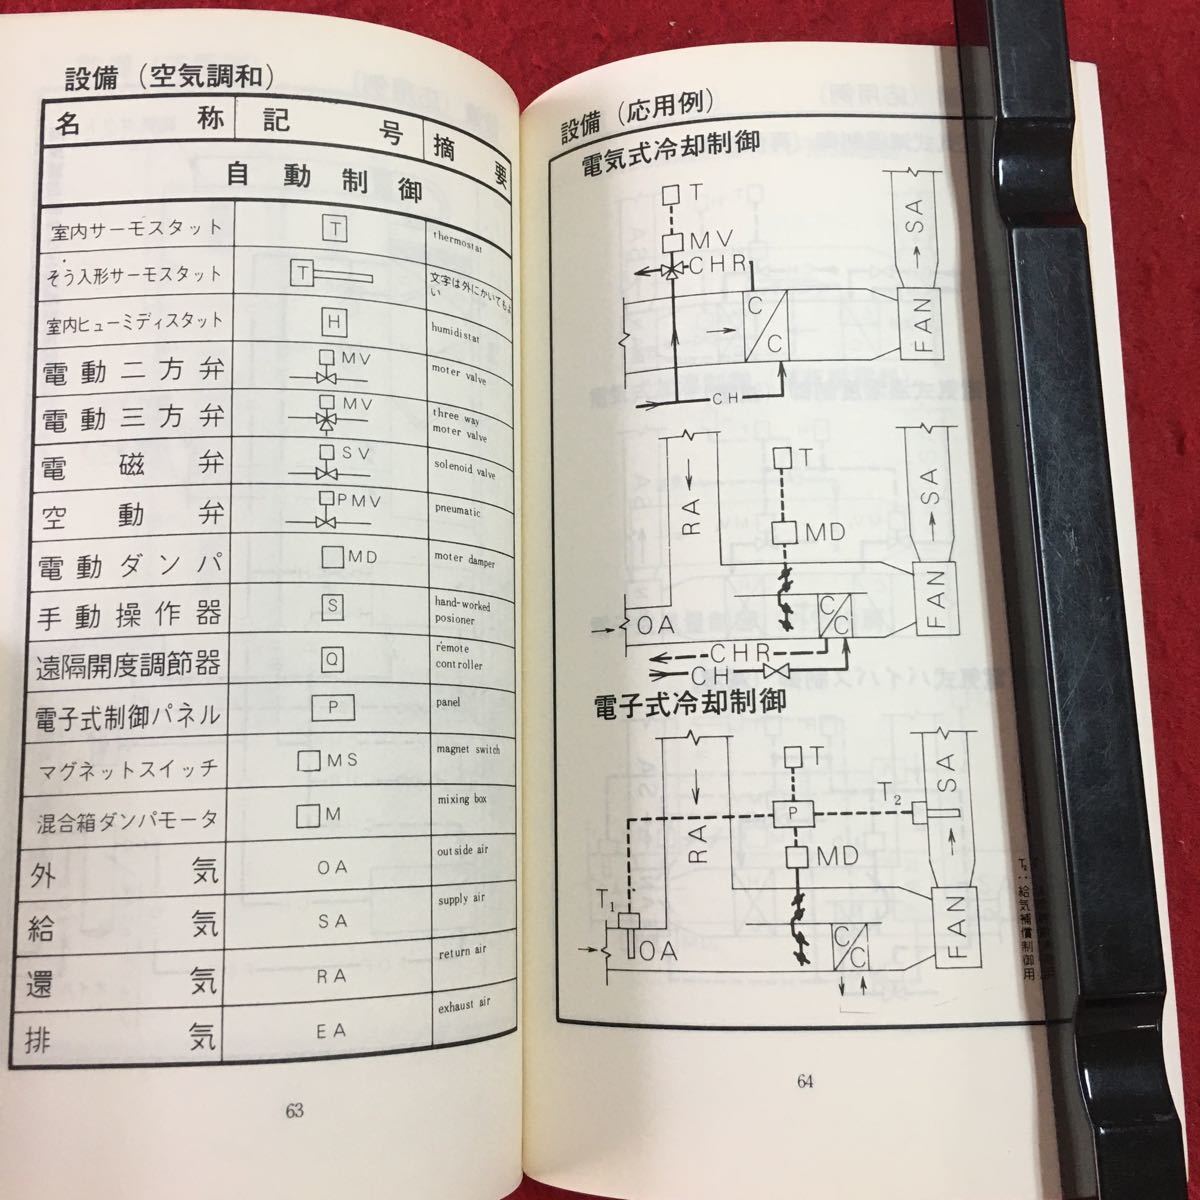 設備（空気調和）
名称 記号 摘要
自動制御
室内サーモスタット T thermostat
そう入形サーモスタット T 文字は外にかいてもよ
い
室内ヒューミディスタット H humidistat
電動二方弁 MV moter valve
電動三方弁 MV three way
moter valve
電磁弁 SV solenoid valve
空動弁 PMV pneumatic
電動ダンパ MD moter damper
手動操作器 S hand-worked
posioner
遠隔開度調節器 Q remote
controller
電子式制御パネル P panel
マグネットスイッチ MS magnet switch
混合箱ダンパモータ M mixing box
外気 OA outside air
給気 SA supply air
還気 RA return air
排気 EA exhaust air
63
設備（応用例）
電気式冷却制御
T
MV
CHR
SA
FAN
C
C
CH
RA
T
MD
SA
FAN
OA
C
C
CHR
CH
電子式冷却制御
T
RA
P
T2
SA
MD
T1
OA
C
C
FAN
T2：給気補償制御用
64